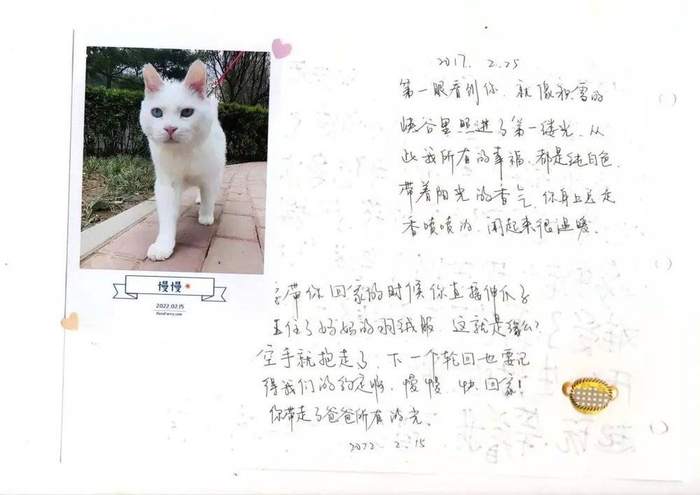 2017. 2.25
第一眼看到你，就像积雪的
峡谷里照进了第一缕光，从
此我所有的幸福，都是纯白色，
带着阳光的香气，你身上总是
香喷喷的，闻起来很温暖。
带你回家的时候你直接伸爪子
住了妈妈的羽绒服，这就是缘么？
空手就抱走了，下一个轮回也要记
得我们的约定啊，慢慢，快回家！
你带走了爸爸所有的光。
2022. 2.15
慢慢
2022.02.15